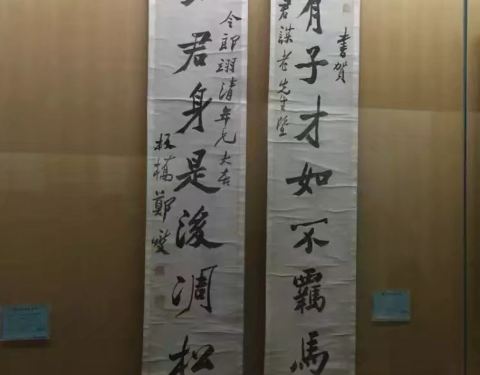 書賀
有子才如不羈馬
君謀老先生暨
令郎翊清年兄大喜
君身是後凋松
板橋鄭燮